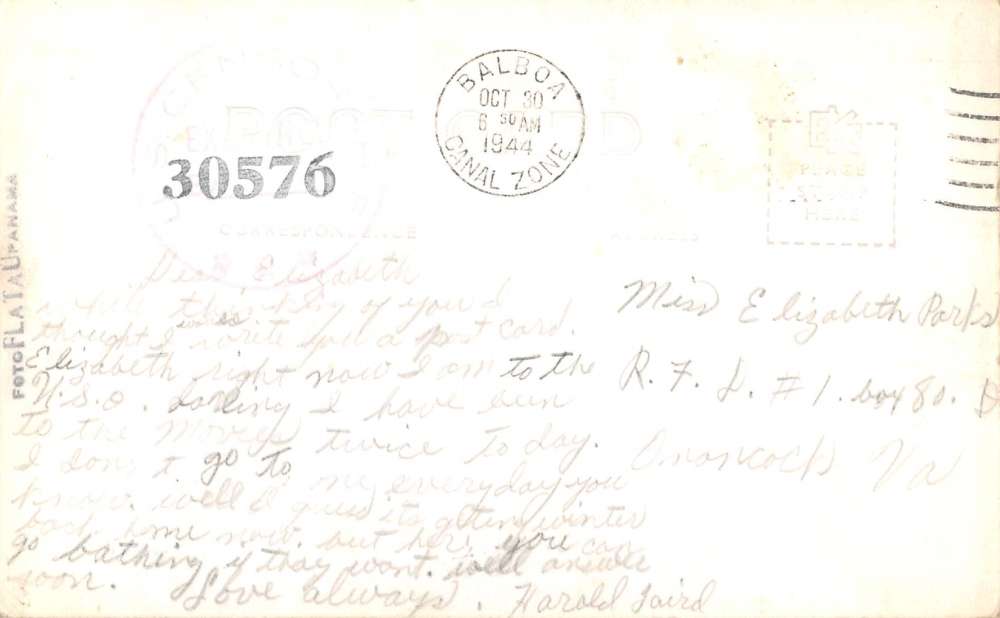 BALBOA
OCT 30
6 30 AM
1944
CANAL ZONE
POST CARD
30576
CORRESPONDENCE
ADDRESS
PLACE
STAMP
HERE
FOTO FLATAU PANAMA
Dear Elizabeth
while thinking of you I
thought I write you a post card.
Elizabeth right now I am to the
U.S.O. Darling I have been
to the Movies twice today.
I don't go to one everyday you
know. well I guess its geting winter
back home now. but here you can
go bathing if thay wont. well answer
soon. Love always. Harold Laird
Miss Elizabeth Parks
R. F. D. #1. box 80.
Onancock Va